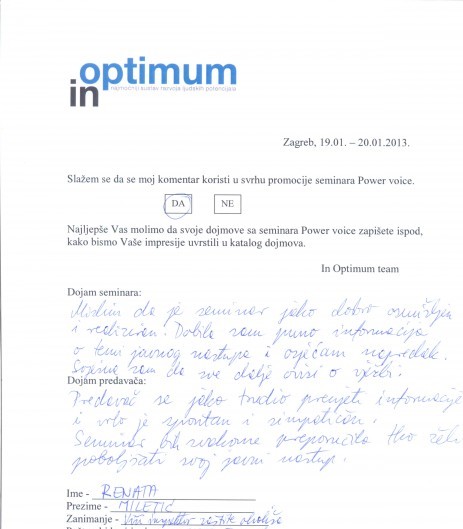 in optimum
Zagreb, 19.01. – 20.01.2013.
Slažem se da se moj komentar koristi u svrhu promocije seminara Power voice.
DA NE
Najljepše Vas molimo da svoje dojmove sa seminara Power voice zapišete ispod,
kako bismo Vaše impresije uvrstili u katalog dojmova.
In Optimum team
Dojam seminara:
Mislim da je seminar jako dobro osmišljen
i realiziran. Dobila sam puno informacija
o temi javnog nastupa i osjećam napredak.
Svjesna sam da sve dalje ovisi o vježbi.
Dojam predavača:
Predavač se jako trudio prenijeti informacije
i vrlo je spontan i simpatičan.
Seminar bih svakome preporučila tko želi
poboljšati svoj javni nastup.
Ime - RENATA
Prezime - MILETIĆ
Zanimanje - Viši inspektor zaštite okoliša